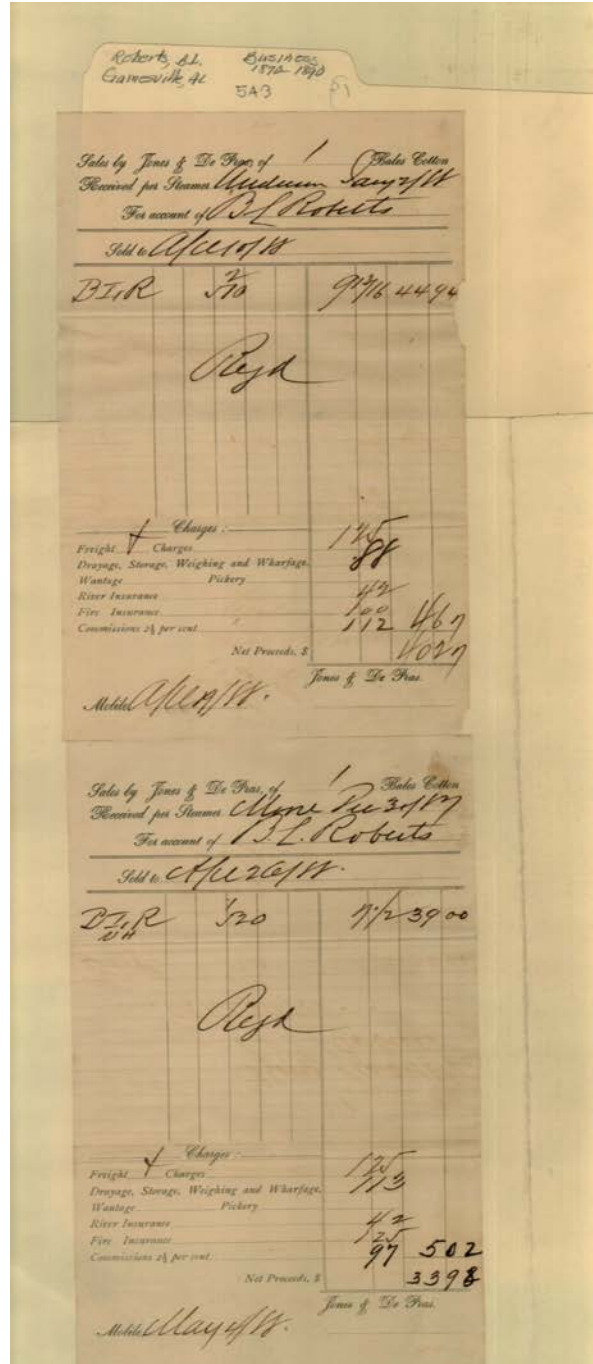 Roberts, B.L. Business
Gainesville, AL 1872-1890
5A3
Sales by Jones & De Pras, of 1 Bales Cotton
Received per Steamer
For account of B L Roberts
Sold to
BLR 9 13/16 44 94
Rejd
Charges :
Freight & Charges 125
Drayage, Storage, Weighing and Wharfage, 88
Wantage Pickery
River Insurance 42
Fire Insurance 100
Commissions 2½ per cent. 112 467
Net Proceeds, $ 4027
Jones & De Pras.
Mobile
Sales by Jones & De Pras, of 1 Bales Cotton
Received per Steamer
For account of B. L. Roberts
Sold to
BLR 520 7 1/2 39 00
Rejd
Charges :
Freight & Charges 125
Drayage, Storage, Weighing and Wharfage, 113
Wantage Pickery
River Insurance 42
Fire Insurance 125
Commissions 2½ per cent. 97 502
Net Proceeds, $ 3398
Jones & De Pras.
Mobile May